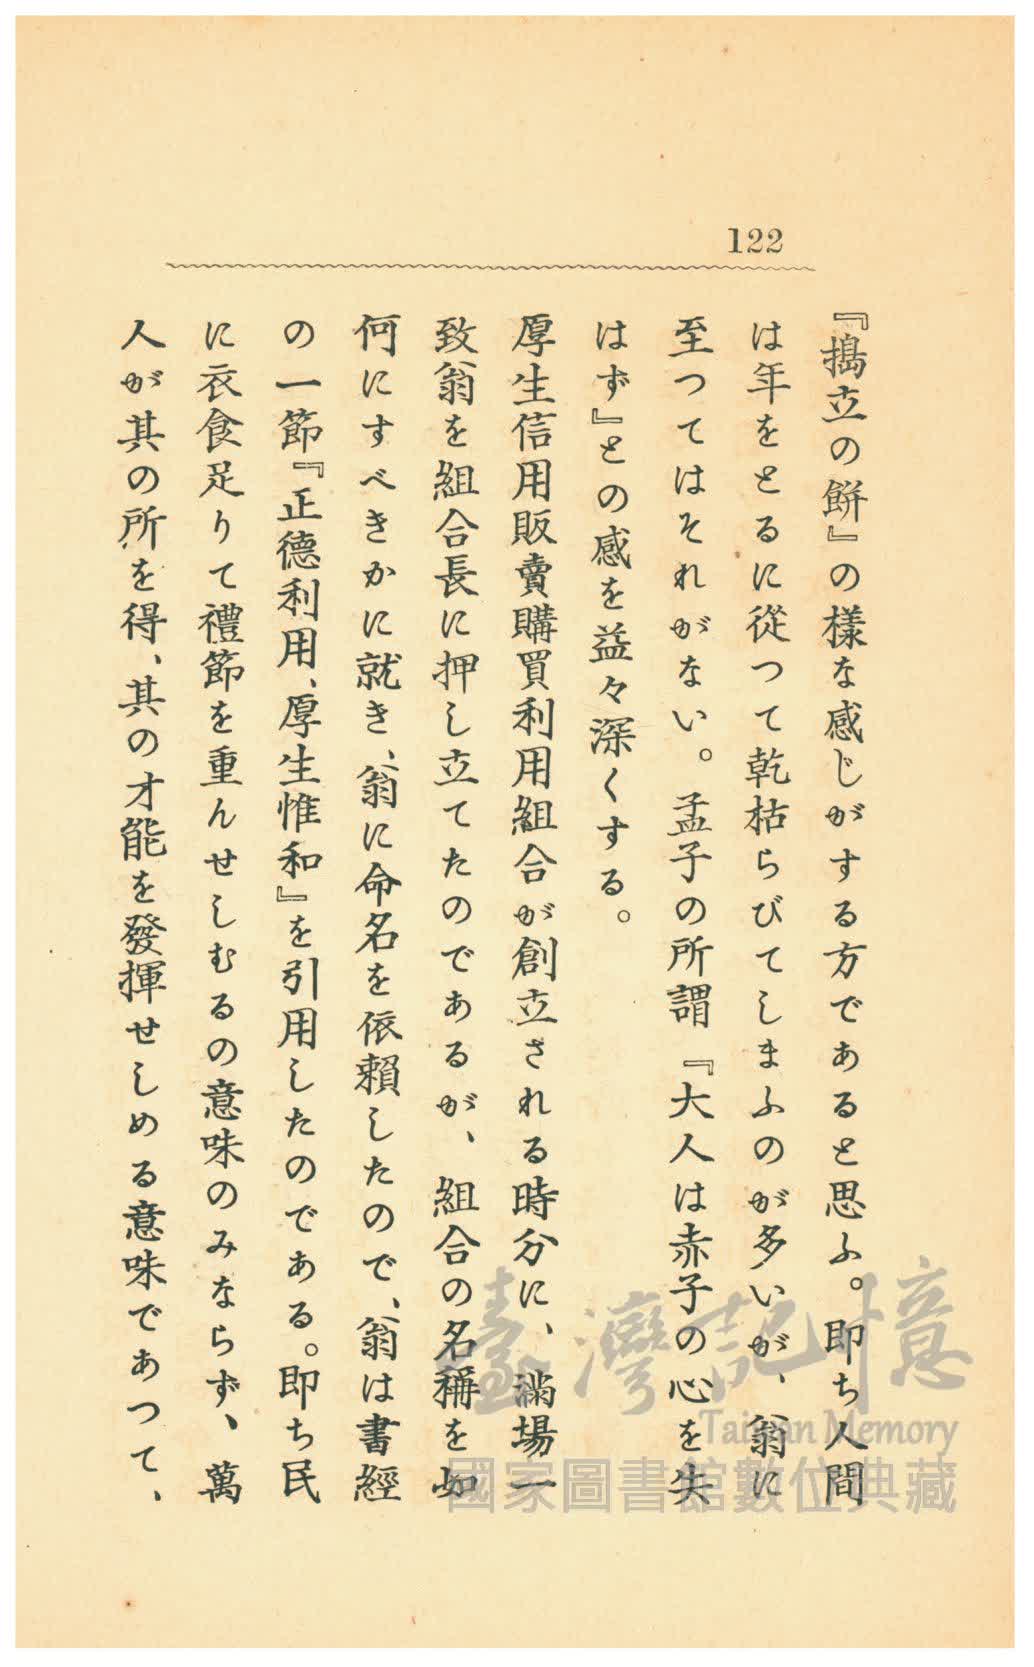 122
『搗立の餅』の樣な感じがする方であると思ふ。即ち人間
は年をとるに從つて乾枯らびてしまふのが多いが、翁に
至つてはそれがない。孟子の所謂『大人は赤子の心を失
はず』との感を益々深くする。
厚生信用販賣購買利用組合が創立される時分に、滿場一
致翁を組合長に押し立てたのであるが、組合の名稱を如
何にすべきかに就き、翁に命名を依賴したので、翁は書經
の一節『正德利用、厚生惟和』を引用したのである。即ち民
に衣食足りて禮節を重んせしむるの意味のみならず、萬
人が其の所を得、其の才能を發揮せしめる意味であつて、
臺灣記憶
Taiwan Memory
國家圖書館數位典藏